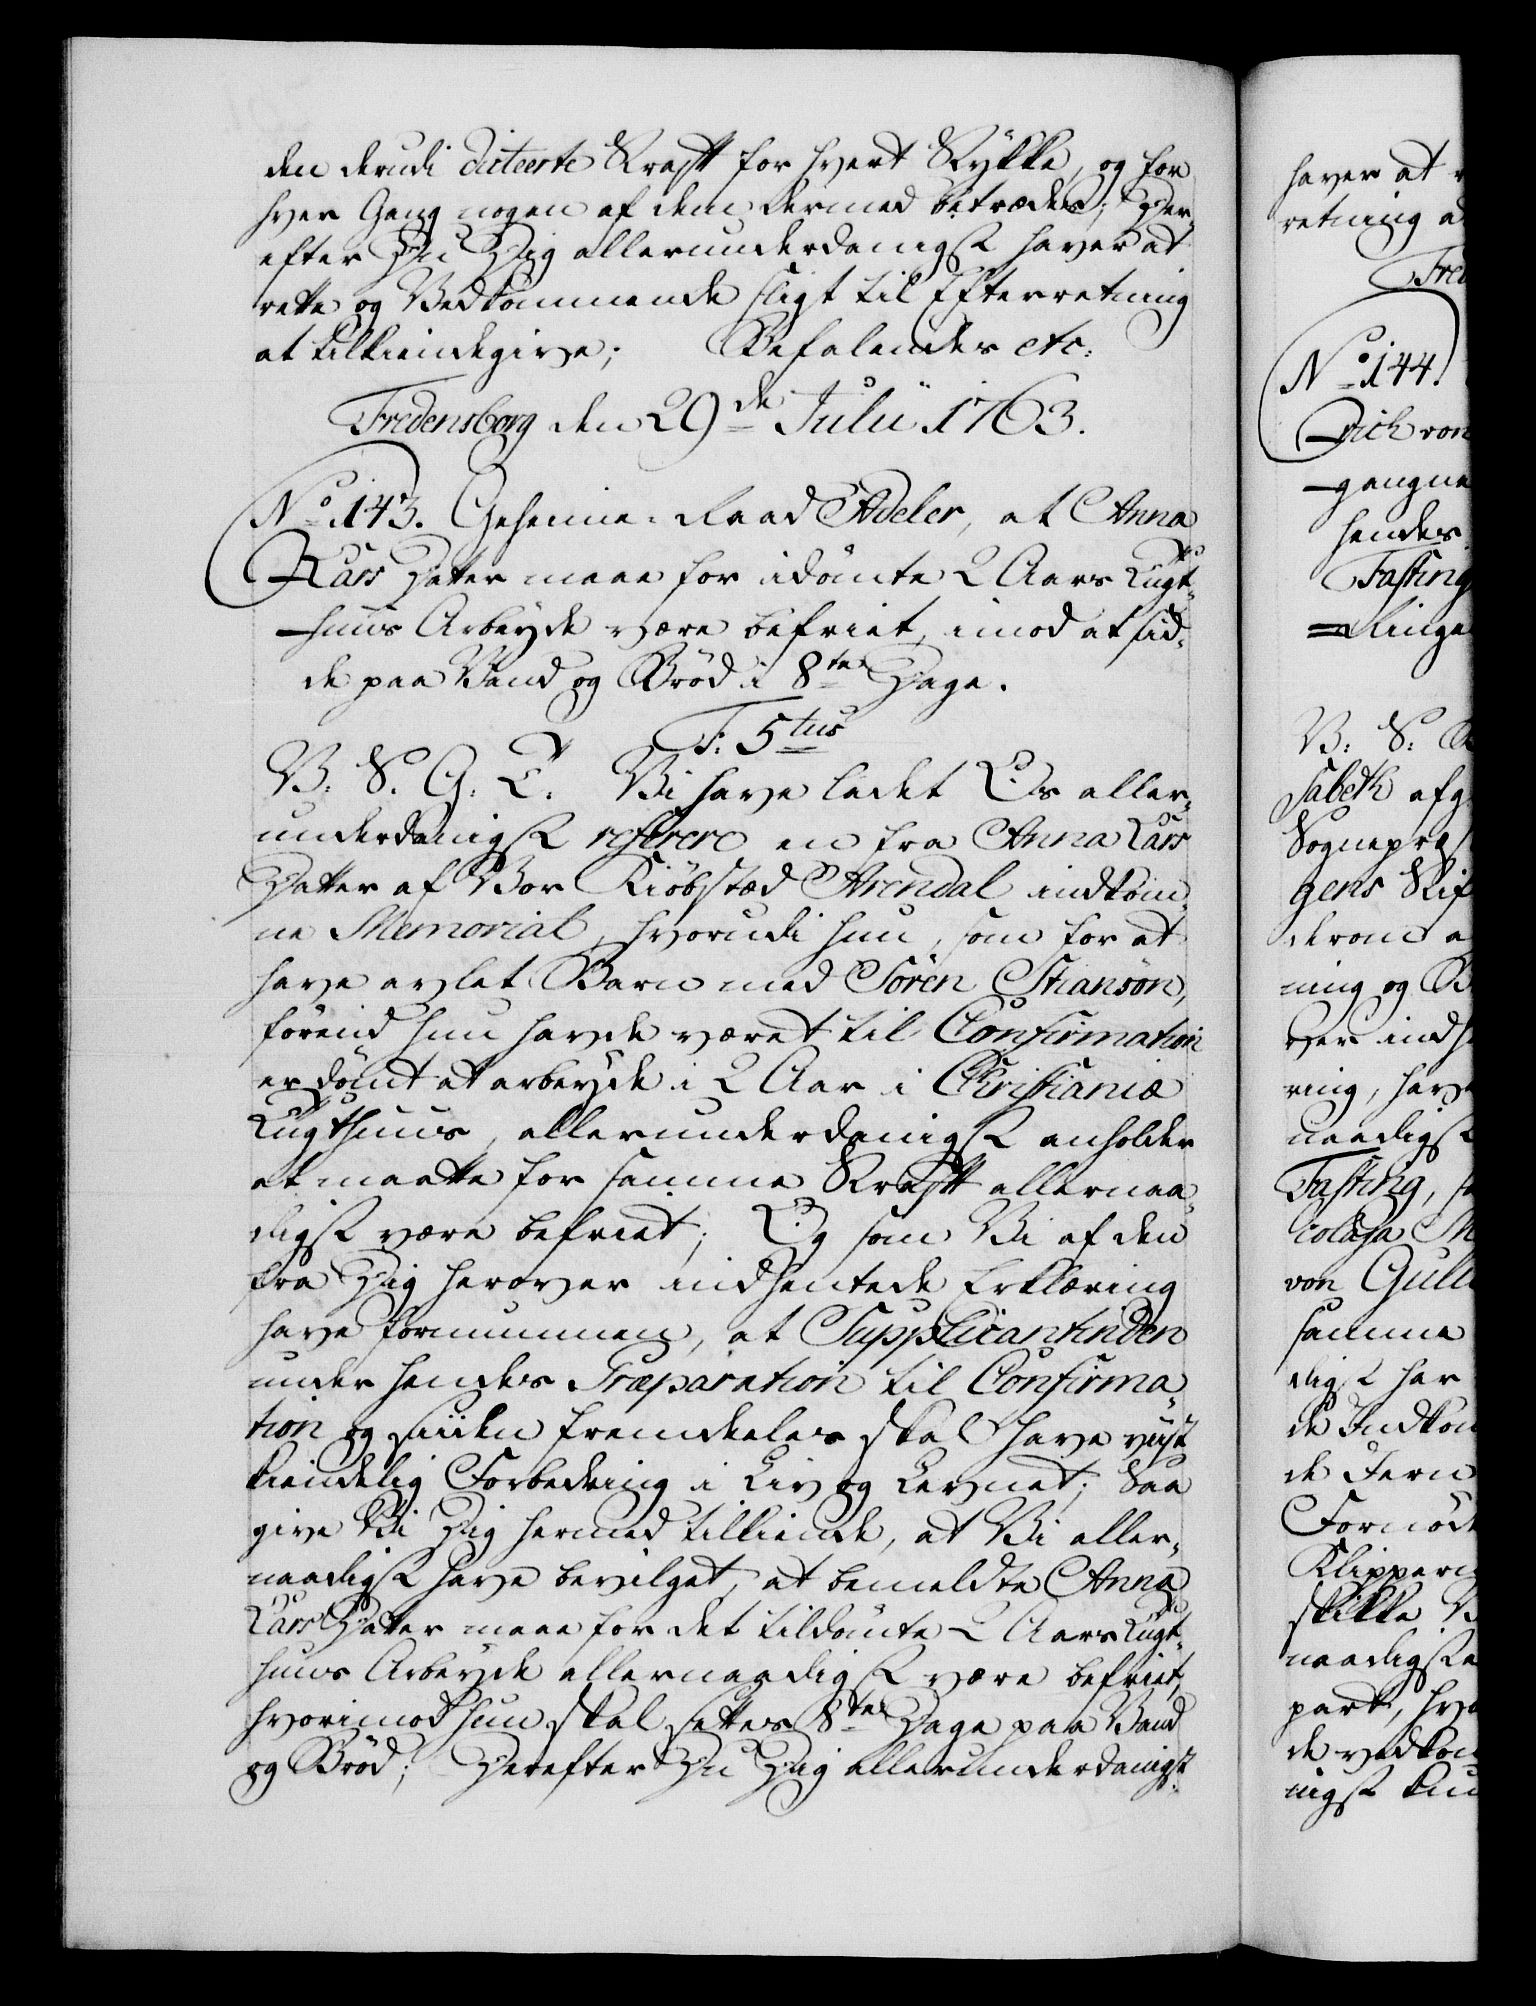 den derudi dicteerte Straff for hvert Stykke, og for
hver Gang nogen af dem dermed betrædes; Der-
efter Du Dig allerunderdanigst haver at
rette og Vedkommende sligt til Efterretning
at tilkiendegive; Befalendes etc:
Fredensborg den 29de Julii 1763.
No 143. Geheime-Raad Adeler, at Anna
Lars Datter maae for idömte 2 Aars Tugt-
huus Arbeyde være befriet, imod at sid-
de paa Vand og Bröd i 8te Dage.
F: 5tus
V: S: G: T: Vi have ladet Os aller-
underdanigst referere en fra Anna Lars
Datter af Vor Kiöbstæd Arendal indkom-
ne Memorial, hvorudi hun, som for at
have avlet Barn med Sören Stiansön,
förend hun havde været til Confirmation
er dömt at arbeyde i 2 Aar i Christianiæ
Tugthuus, allerunderdanigst anholder
at maatte for samme Straff allernaa-
digst være befriet; Og som Vi af den
fra Dig herover indhentede Erklæring
have fornummen, at Supplicantinden
under hendes Præparation til Confirma-
tion og siiden fremdeeles skal have viist
kiendelig Forbedring i Liv og Levnet; Saa
give Vi Dig hermed tilkiende, at Vi aller-
naadigst have bevilget, at bemeldte Anna
Lars Datter maae for det tildömte 2 Aars Tugt-
huus Arbeyde allernaadigst være befriet,
hvorimod hun skal settes 8te Dage paa Vand
og Bröd; Derefter Du Dig allerunderdanigst
haver at
retning
No 144.
Erich von
gangne
hendes
Fasting
Ringe
V: S:
sabeth
Sognepræst
gens
derom
ning og
ver
ring, have
naadigst
Fasting,
von
samme
digst har
de
de
Klippern
skikke
naadigst
part,
de
nigst